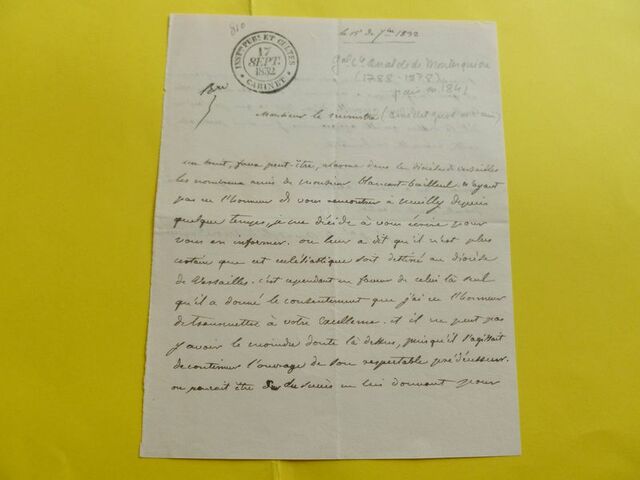 810
le 15 de 7bre 1832
INSTon PUBe ET CULTES
17
SEPT.
1832
* CABINET *
gal Cte Anatole de Montesquiou
(1788-1878)
pair en 1841
Monsieur le ministre
un bruit, faux peut être, alarme dans le diocèse de Versailles
les nombreux amis de monsieur Blancart-Bailleul. n'ayant
pas eu l'honneur de vous rencontrer à neuilly depuis
quelque temps, je me décide à vous écrire pour
vous en informer. on leur a dit qu'il n'est plus
certain que cet ecclésiastique soit destiné au diocèse
de Versailles. c'est cependant en faveur de celui là seul
qu'il a donné le consentement que j'ai eu l'honneur
de transmettre à votre excellence. et il ne peut pas
y avoir le moindre doute là dessus, puisqu'il s'agissait
de continuer l'ouvrage de son respectable prédécesseur.
on paraît être sûr du succès en lui donnant pour